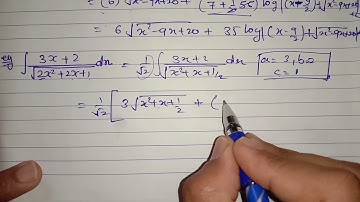 = (6) √x²-9x+20 + (7+ 1/2 55) log|(x-9/2)+√x²-9x+20
= 6√x²-9x+20 + 35 log|(x-9/2)+√x²-9x+20|
eg ∫ 3x+2/√2x²+2x+1 dx = 1/√2 ∫ 3x+2/√x²+x+1/2 dx a=3, b=2
c=1
= 1/√2 [ 3√x²+x+1/2 + (